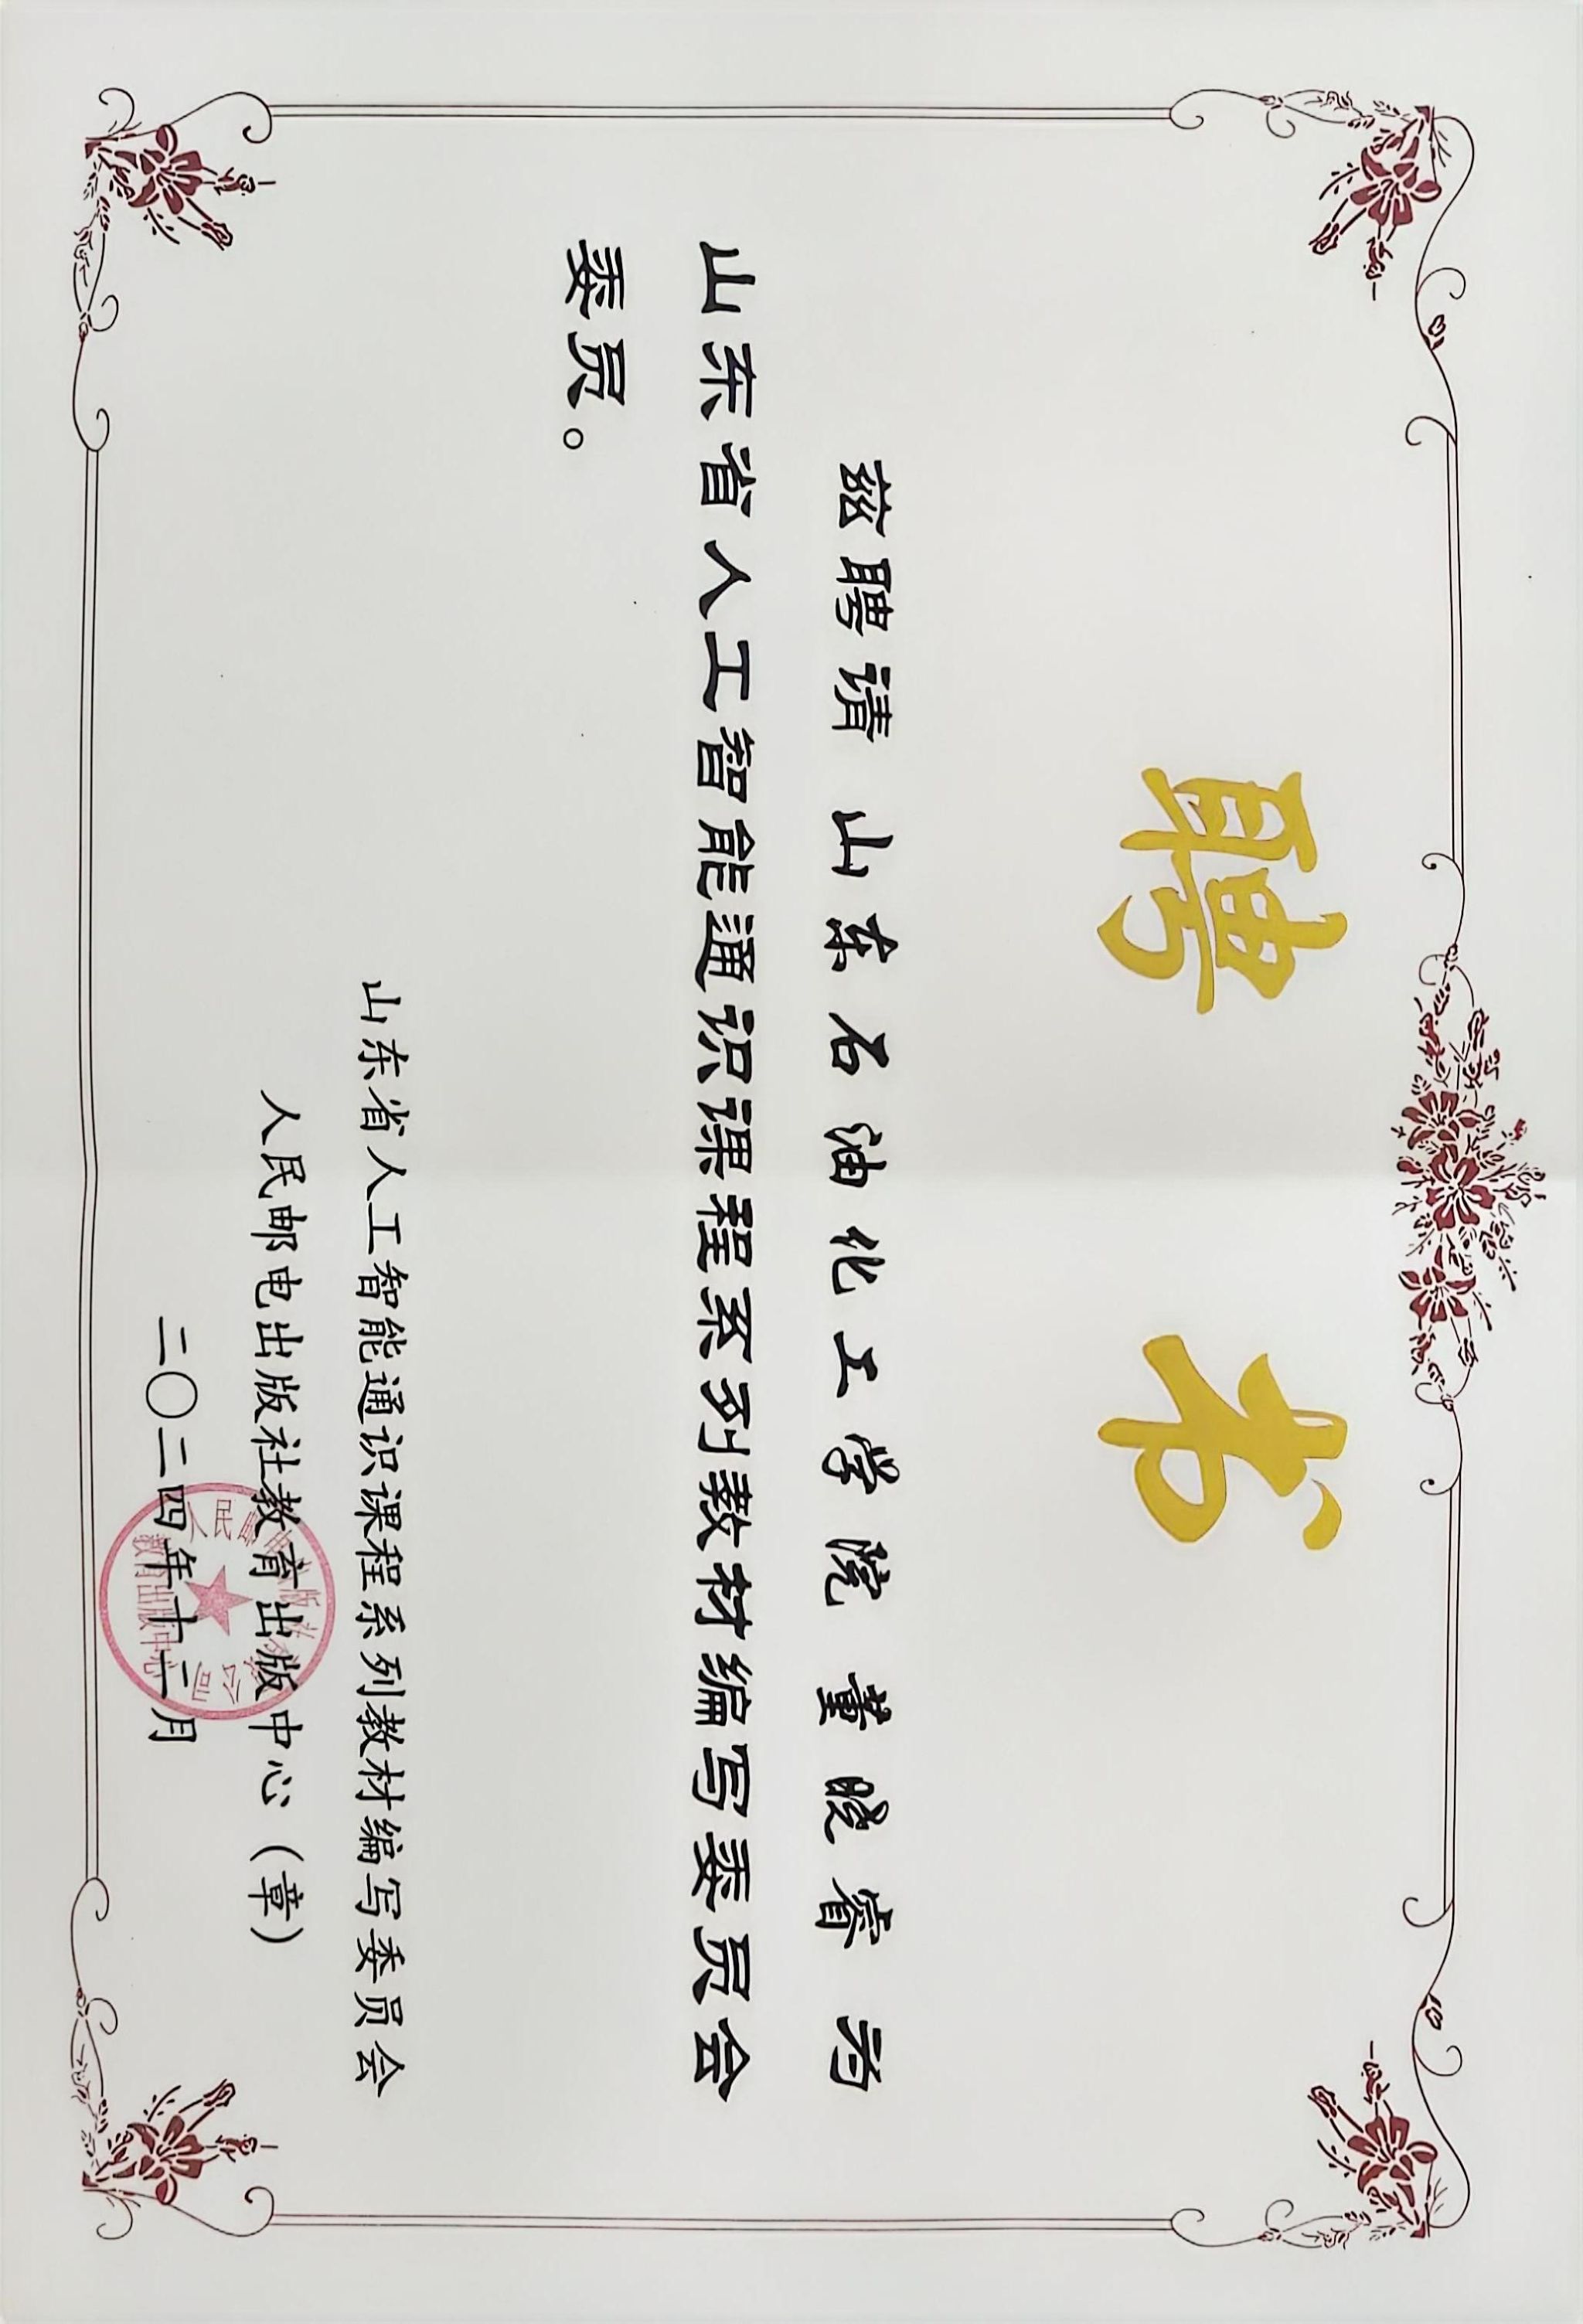 聘书
兹聘请 山东石油化工学院 董晓睿 为
山东省人工智能通识课程系列教材编写委员会
委员。
山东省人工智能通识课程系列教材编写委员会
人民邮电出版社教育出版中心（章）
二〇二四年十二月
人民邮电出版社有限公司
教育出版中心